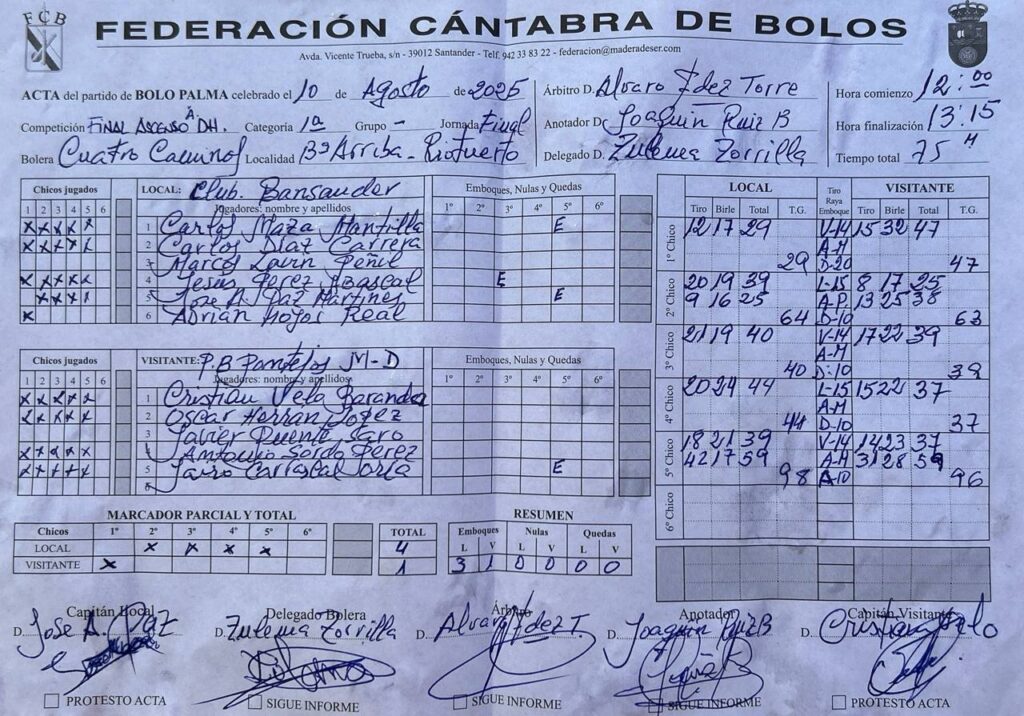 FCB
FEDERACIÓN CÁNTABRA DE BOLOS
Avda. Vicente Trueba, s/n - 39012 Santander - Telf. 942 33 83 22 - federacion@maderadeser.com
ACTA del partido de BOLO PALMA celebrado el 10 de Agosto de 2025
Competición FINAL ASCENSO A DH. Categoría 1ª Grupo - Jornada Final
Bolera Cuatro Caminos Localidad Bº Arriba - Riotuerto
Árbitro D. Alvaro Fdez Torre
Anotador D. Joaquin Ruiz B
Delegado D. Zulema Zorrilla
Hora comienzo 12:00
Hora finalización 13:15
Tiempo total 75 M
Chicos jugados LOCAL: Club. Bansander Emboques, Nulas y Quedas
1 2 3 4 5 6 Jugadores: nombre y apellidos 1º 2º 3º 4º 5º 6º
x x x x x 1 Carlos Maza Mantilla E
x x x x x 2 Carlos Diaz Carrera
3 Marcos Lavin Peñil
x x x x x 4 Jesus Perez Abascal E
x x x x 5 Jose A. Paz Martines E
x 6 Adrian Hoyos Real
Chicos jugados VISITANTE: P.B Pontejos M-D Emboques, Nulas y Quedas
1 2 3 4 5 6 Jugadores: nombre y apellidos 1º 2º 3º 4º 5º 6º
x x x x x 1 Cristian Vela Baranda
x x x x x 2 Oscar Herran Lopez
3 Javier Puente Saro
x x x x x 4 Antonio Sordo Perez
x x x x x 5 Jairo Carrascal Oria E
6
LOCAL Tiro Raya Emboque VISITANTE
Tiro Birle Total T.G. Tiro Birle Total T.G.
1º Chico 12 17 29 V-14 15 32 47
A-M
29 D-20 47
2º Chico 20 19 39 L-15 8 17 25
9 16 25 A-P 13 25 38
64 D-10 63
3º Chico 21 19 40 V-14 17 22 39
A-M
40 D-10 39
4º Chico 20 24 44 L-15 15 22 37
A-M
44 D-10 37
5º Chico 18 21 39 V-14 14 23 37
42 17 59 A-M 31 28 59
98 A-10 96
6º Chico
MARCADOR PARCIAL Y TOTAL
Chicos 1º 2º 3º 4º 5º 6º TOTAL
LOCAL x x x x 4
VISITANTE x 1
RESUMEN
Emboques Nulas Quedas
L V L V L V
3 1 0 0 0 0
Capitán Local Delegado Bolera Árbitro Anotador Capitán Visitante
D. Jose A. Paz D. Zulema Zorrilla D. Alvaro Fdez T. D. Joaquin Ruiz B D. Cristian Velo
PROTESTO ACTA SIGUE INFORME SIGUE INFORME SIGUE INFORME PROTESTO ACTA